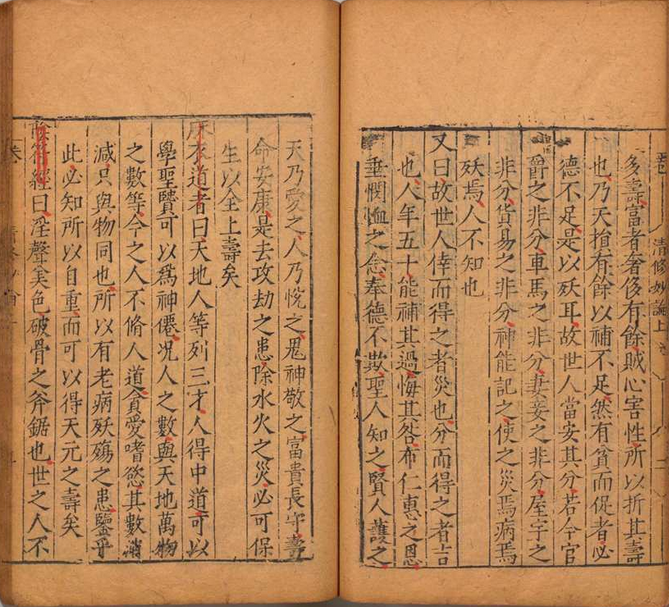 清脩妙論上
多壽富者奢侈有餘賊心害性所以折其壽
也乃天損有餘以補不足然有貧而促者必
德不足是以殀耳故世人當安其分若今官
爵之非分車馬之非分妻妾之非分屋宇之
非分貨易之非分神能記之使之災焉病焉
殀焉人不知也
又曰故世人倖而得之者災也分而得之者吉
也人年五十能補其過悔其咎布仁惠之恩
垂憫恤之念奉德不欺聖人知之賢人護之
天乃愛之人乃悅之鬼神敬之富貴長守壽
命安康是去攻劫之患除水火之災必可保
生以全上壽矣
麻衣道者曰天地人等列三才人得中道可以
學聖賢可以爲神僊况人之數與天地萬物
之數等今之人不脩人道貪愛嗜慾其數消
減只與物同也所以有老病殀殤之患鑒乎
此必知所以自重而可以得天元之壽矣
陰符經曰淫聲美色破骨之斧鋸也世之人不